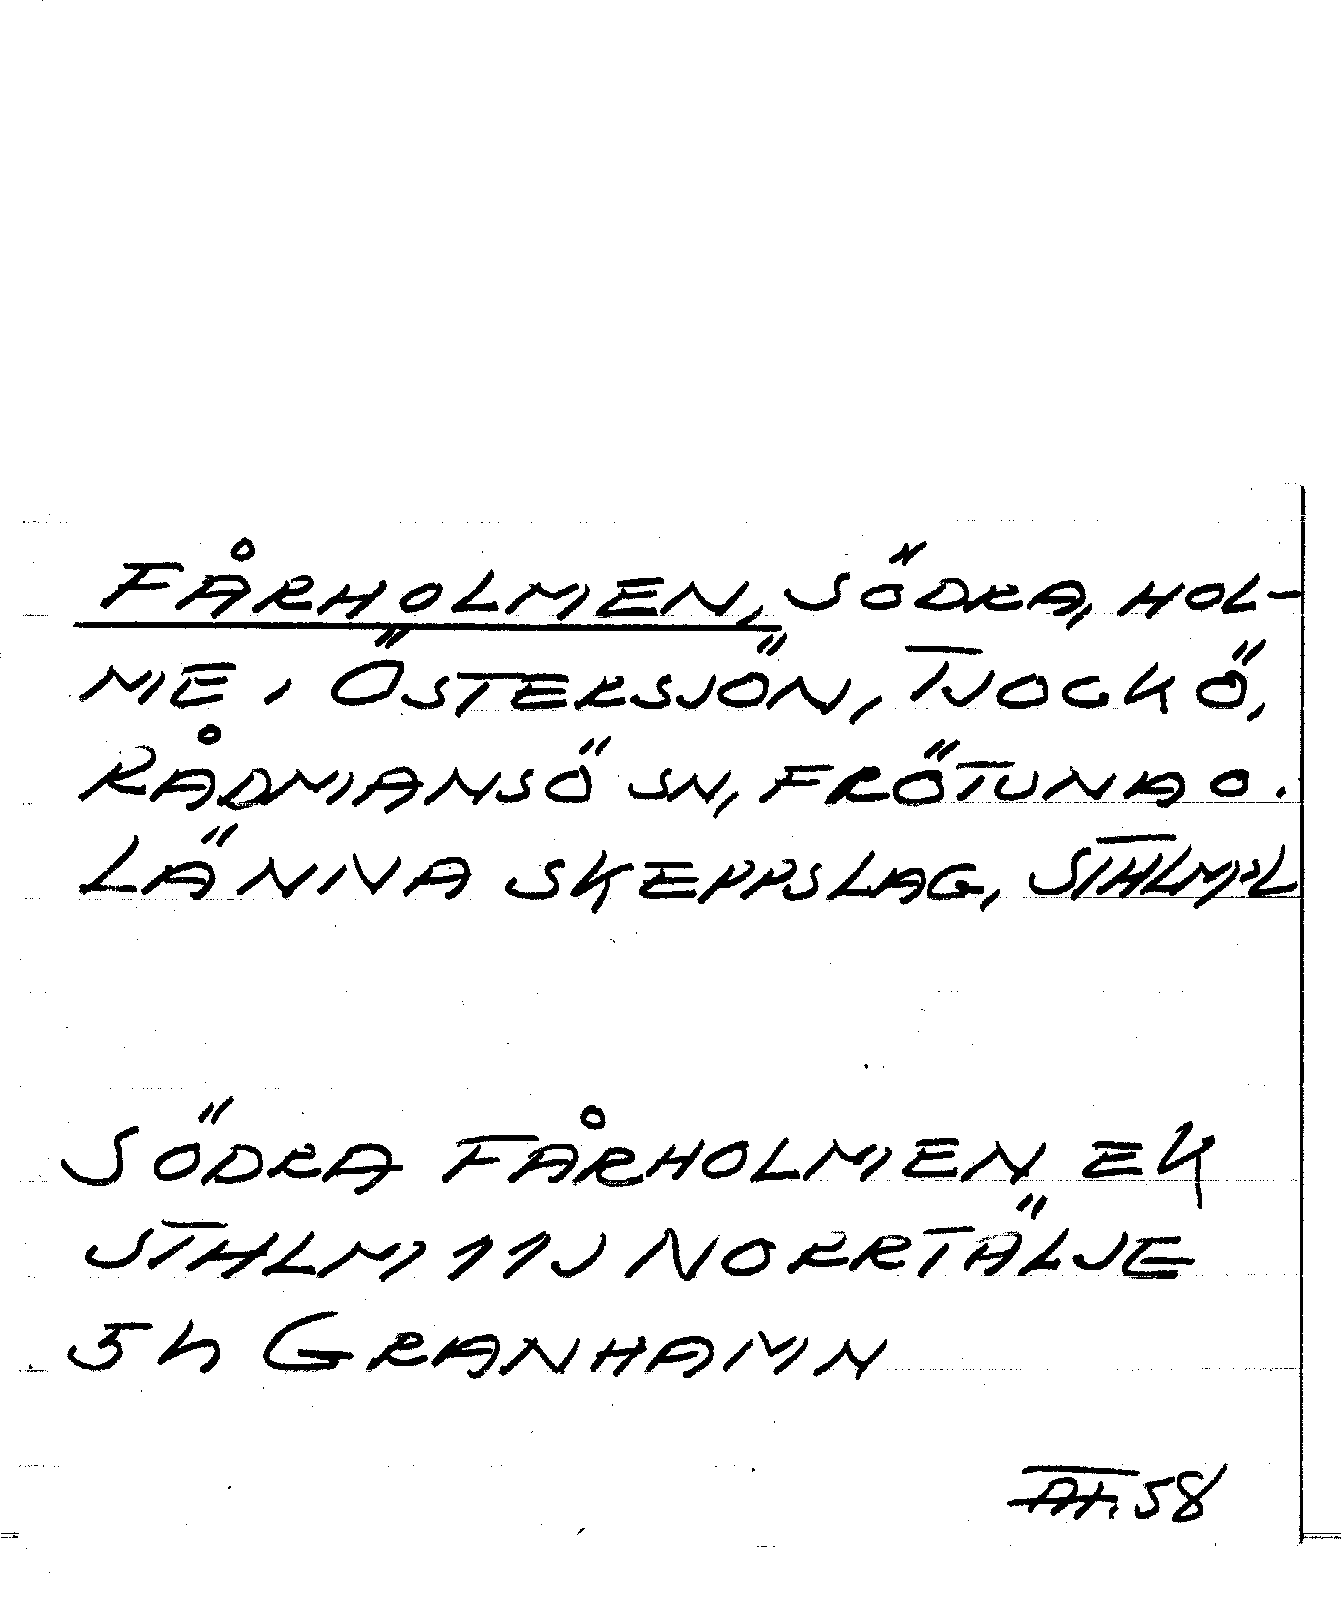 FÅRHOLMEN, SÖDRA, HOL-
ME, I ÖSTERSJÖN, TJOCKÖ,
RÅDMANSÖ SN, FRÖTUNA O.
LÄNNA SKEPPSLAG, STHLM:L
SÖDRA FÅRHOLMEN EK
STHLM 11J NORRTÄLJE
5h GRANHAMN
58